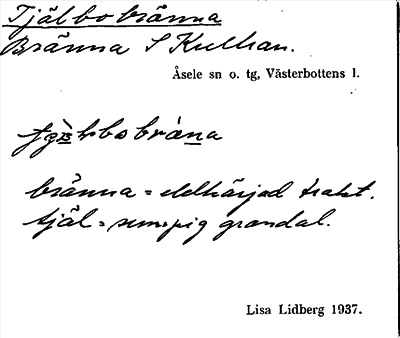 Tjälbobränna
Bränna S Kullan.
Åsele sn o. tg, Västerbottens l.
bränna = eldhärjad trakt.
tjäl = sumpig grandal.
Lisa Lidberg 1937.